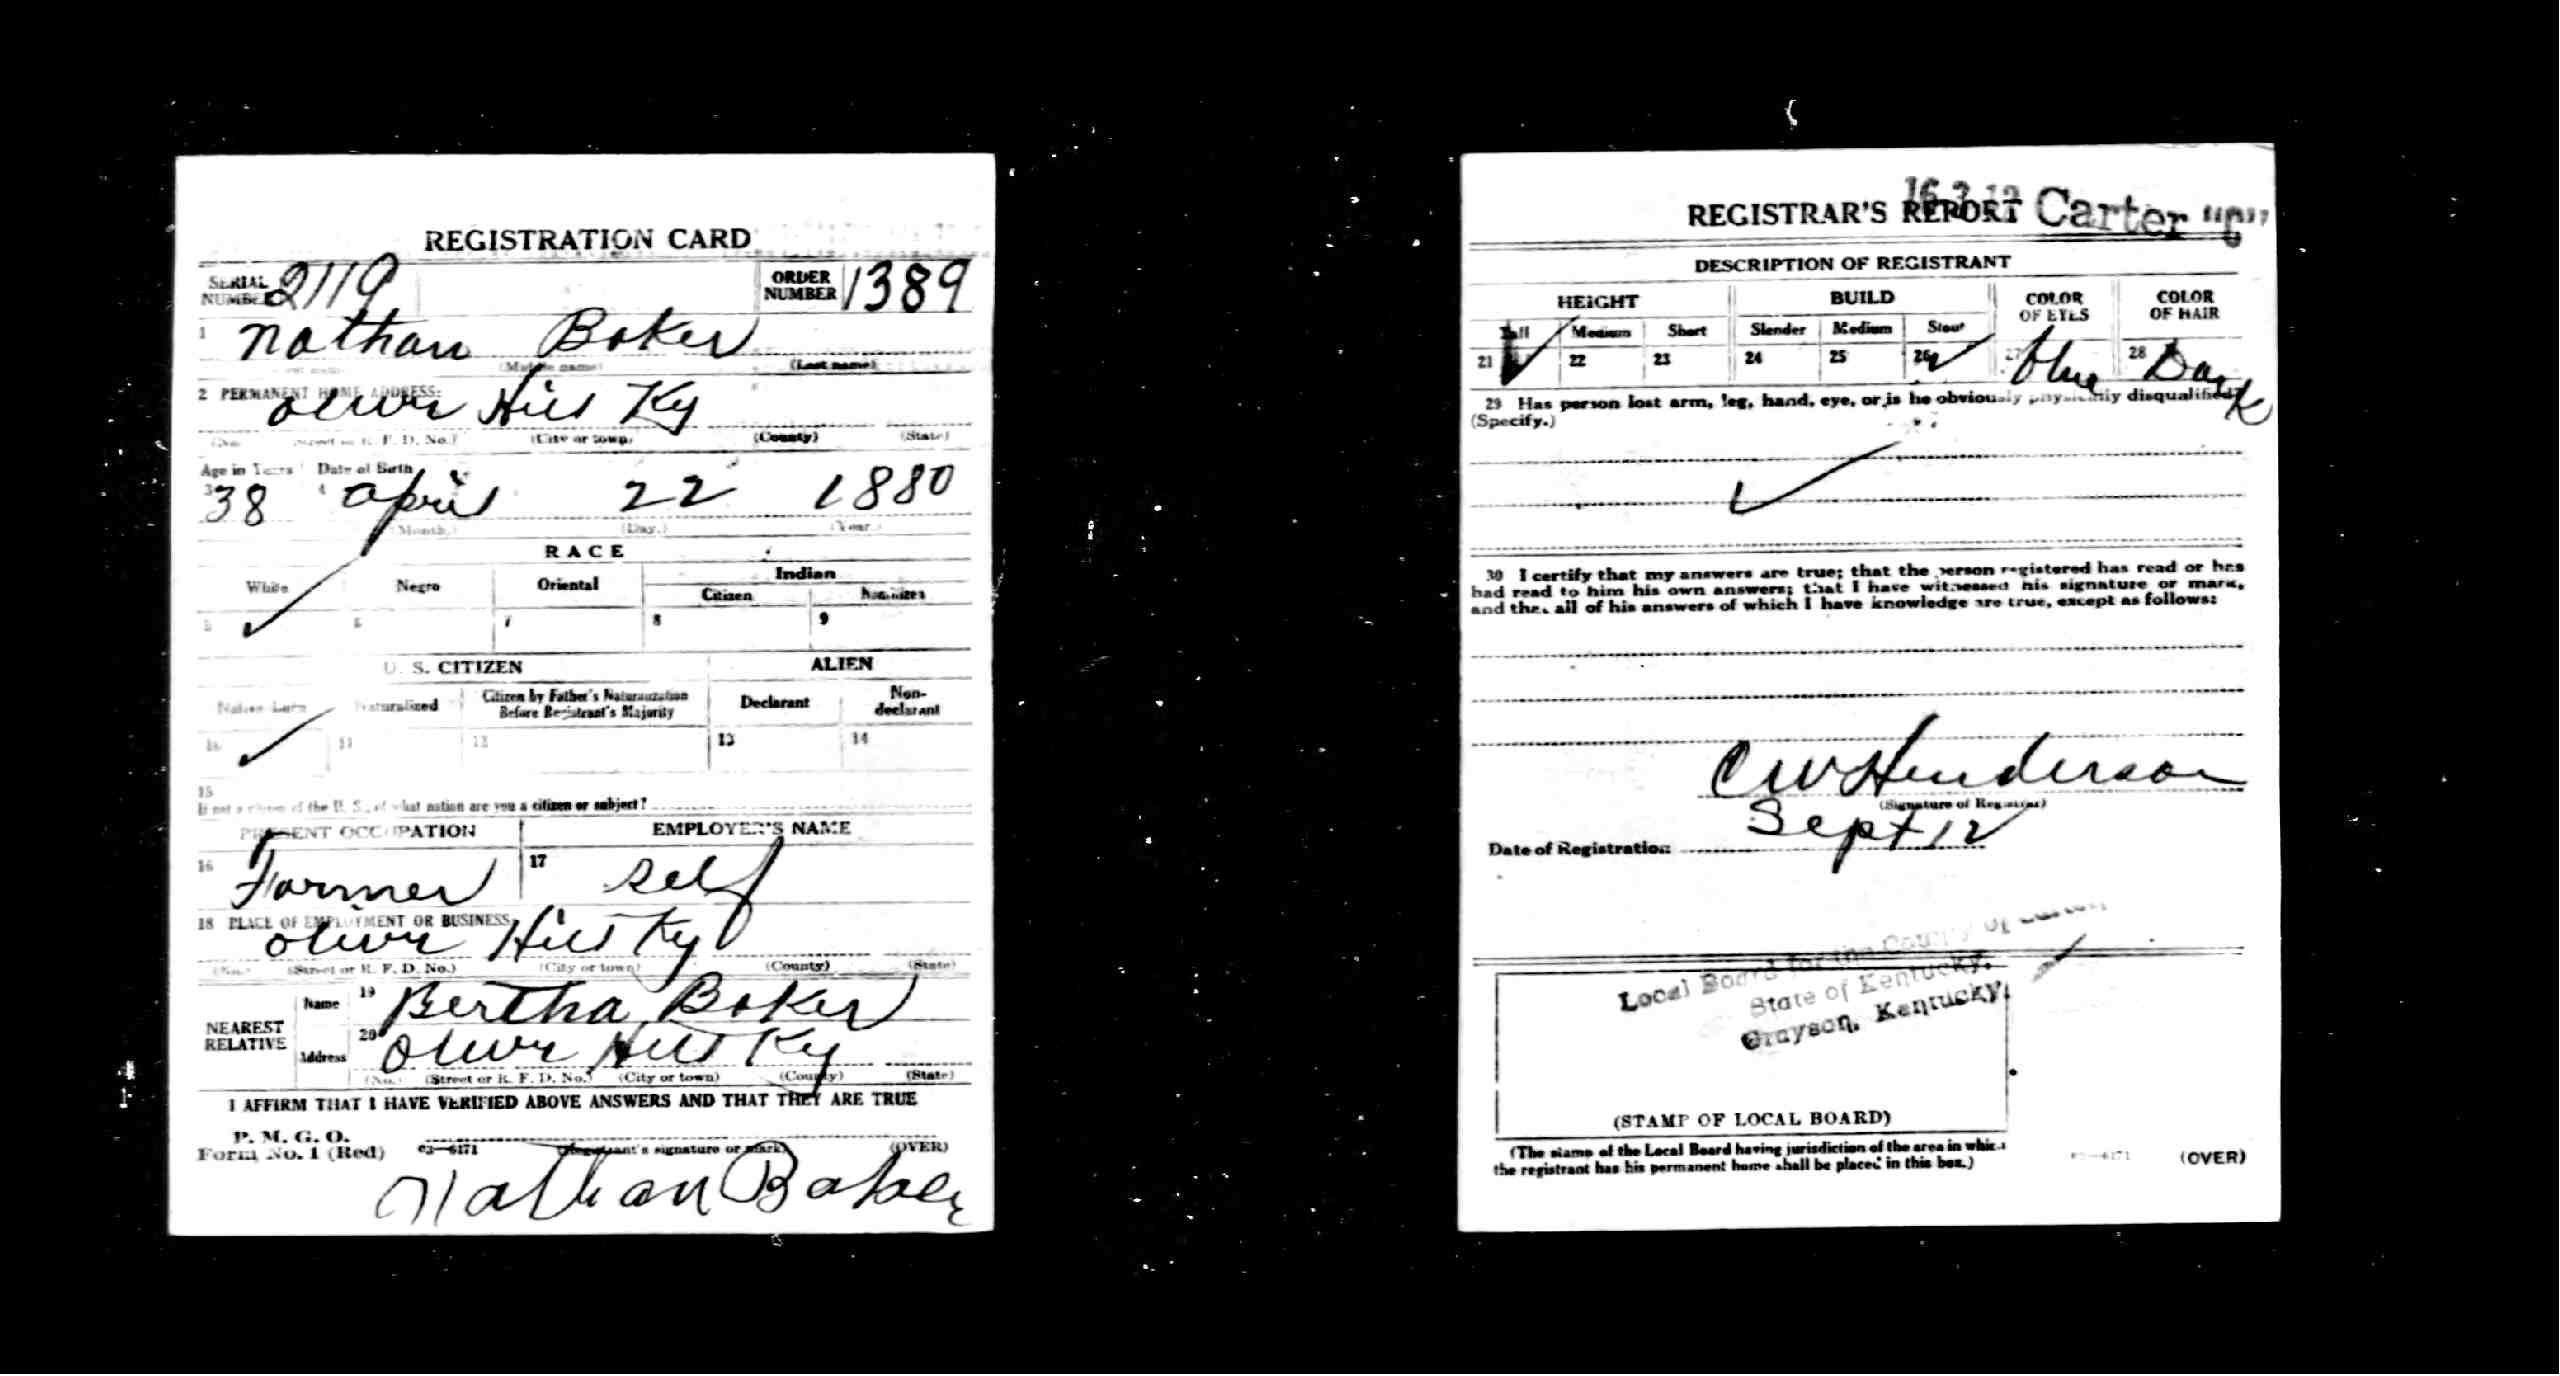 REGISTRATION CARD
SERIAL NUMBER 2119 ORDER NUMBER 1389
1 Nathan Baker
(Middle name) (Last name)
2 PERMANENT HOME ADDRESS:
Olive Hill Ky
(No.) (Street or R. F. D. No.) (City or town) (County) (State)
Age in Years Date of Birth
3 38 4 April 22 1880
(Month.) (Day.) (Year.)
RACE
White Negro Oriental Indian
Citizen Noncitizen
5 ✓ 6 7 8 9
U. S. CITIZEN ALIEN
Native Born Naturalized Citizen by Father's Naturalization Before Registrant's Majority Declarant Non-declarant
10 ✓ 11 12 13 14
15
If not a citizen of the U. S., of what nation are you a citizen or subject?
PRESENT OCCUPATION EMPLOYER'S NAME
16 Farmer 17 Self
18 PLACE OF EMPLOYMENT OR BUSINESS
Olive Hill Ky
(No.) (Street or R. F. D. No.) (City or town) (County) (State)
NEAREST RELATIVE Name 19 Bertha Baker
Address 20 Olive Hill Ky
(No.) (Street or R. F. D. No.) (City or town) (County) (State)
I AFFIRM THAT I HAVE VERIFIED ABOVE ANSWERS AND THAT THEY ARE TRUE
P. M. G. O.
Form No. 1 (Red) 03—6171 (Registrant's signature or mark) (OVER)
Nathan Baker
REGISTRAR'S REPORT Carter "C"
DESCRIPTION OF REGISTRANT
HEIGHT BUILD COLOR OF EYES COLOR OF HAIR
Tall Medium Short Slender Medium Stout
21 ✓ 22 23 24 25 26 ✓ 27 blue 28 Dark
29 Has person lost arm, leg, hand, eye, or is he obviously physically disqualified?
(Specify.)
✓
30 I certify that my answers are true; that the person registered has read or has
had read to him his own answers; that I have witnessed his signature or mark,
and that all of his answers of which I have knowledge are true, except as follows:
C W Henderson
(Signature of Registrar)
Date of Registration Sept 12
Local Board for the County of Carter,
State of Kentucky,
Grayson, Kentucky.
(STAMP OF LOCAL BOARD)
(The stamp of the Local Board having jurisdiction of the area in which
the registrant has his permanent home shall be placed in this box.)
03—6171 (OVER)